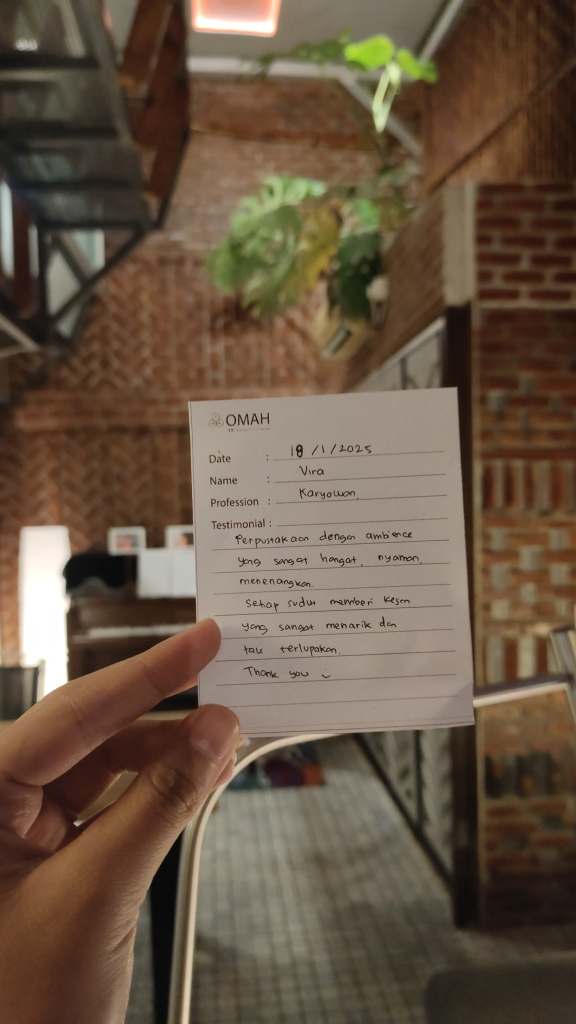 OMAH
Date : 18/1/2025
Name : Vira
Profession : Karyawan
Testimonial :
Perpustakaan dengan ambience
yang sangat hangat, nyaman,
menenangkan.
Setiap sudut memberi kesan
yang sangat menarik dan
tak terlupakan.
Thank you